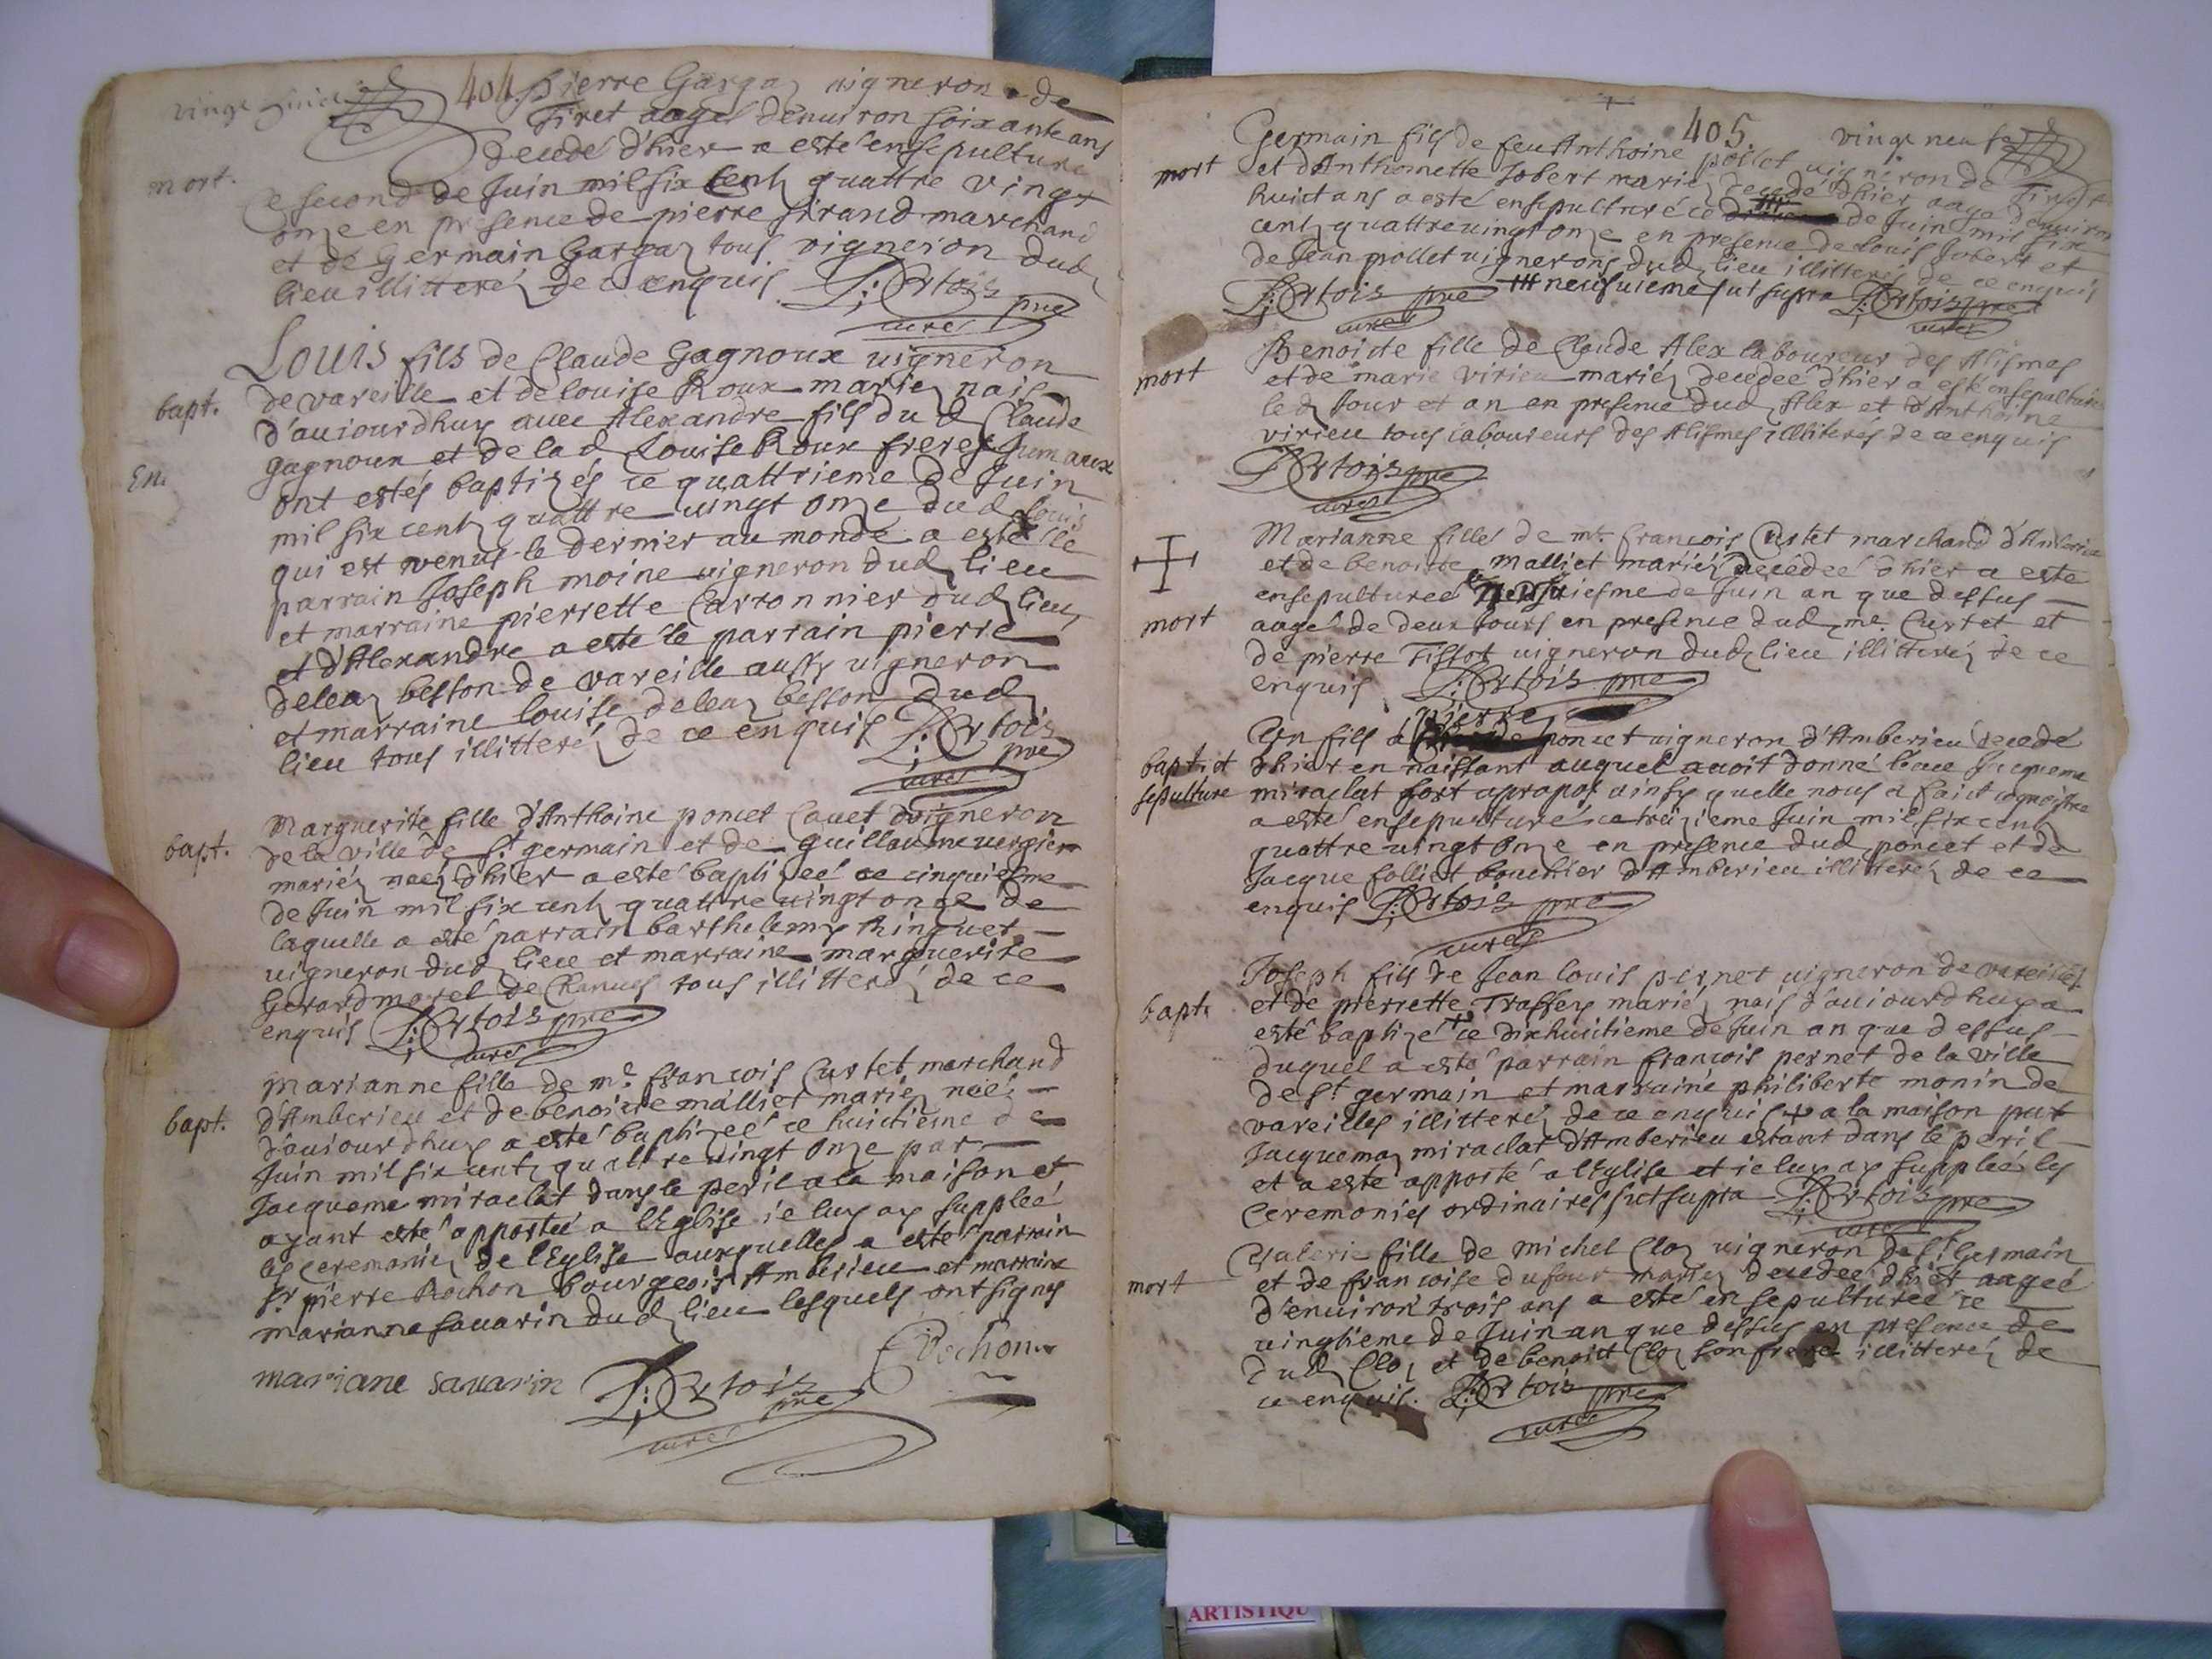 404.
mort.
pierre Gargaz vigneron de
Tiret aagé denuiron soixante ans
decedé d'hier a esté ensepulturé
Ce second de Juin mil six centz quattre vingt
onze en presence de pierre sirand marchand
et de Germain Gargaz tous vigneron dud
lieu illitteréz de ce enquis D: Ertois pne
curé
bapt.
Louis fils de Claude Gagnoux uigneron
de vareille et de louise Roux mariez nais
d'auiourdhuy auec Alexandre fils dud Claude
Gagnoux et de lad Louise Roux freres Jumaux
En.
ont estés baptizés ce quattrieme de Juin
mil six centz quattre uingt onze dud louis
qui est venus le dernier au monde a esté le
parrain Joseph moine uigneron dud lieu
et marraine pierrette Carronnier dud lieu,
et d'Alexandre a esté le parrain pierre
deleaz besson de vareille aussy uigneron
et marraine louise deleaz besson dud
lieu tous illitteréz de ce enquis D: Ertois
pne
curé
bapt.
Marguerite fille d'Anthoine poncet Cauet vigneron
de la ville de St germain et de guillaume uergier
mariéz neéz d'hier a esté baptizeé ce cinquiesme
de Juin mil six centz quattre uingt onze de
laquelle a esté parrain barthelemy Ringuet
uigneron dud lieu et marraine marguerite
Gerardmorel de Chanues tous illitteréz de ce
enquis D: Ertois pne
curé
bapt.
marianne fille de me. francois Curtet marchand
d'Amberieu et de benoicte malliet mariez neé
d'auiourdhuy a esté baptizeé ce huictieme de
Juin mil six centz quattre uingt onze par
Jacqueme miraclat dans le peril a la maison et
ayant esté apportée a l'Eglise ie luy ay suppleé
les ceremoniez de l'Eglise auxquelles a esté parrain
sr pierre Rochon bourgeois d'Amberieu et marraine
marianne sauarin dud lieu lesquels ont signes
Rochon
mariane sauarin D: Ertois
pne
curé
405. vingt neuf
mort
Germain fils de feu Anthoine pollet uigneron de Tiret
et d'Anthoinette Jobert mariez decedé d'hier aagé denuiron
huict ans a esté ensepulturé ce de Juin mil six
centz quattreuingt onze en presence de louis Jobert et
de Jean pollet uignerons dud lieu illitterés de ce enquis
D: Ertois pne neufuiemes ut supra D: Ertois pne
curé curé
mort
Benoicte fille de Claude Alex laboureur des Alismes
et de marie virieu mariéz decedeé d'hier a esté ensepulturée
led Jour et an en presence dud Alex et d'Anthoine
virieu tous laboureurs des Alismes illiterés de ce enquis
D: Ertois pne
curé
mort
Marianne fille de mr. francois Curtet marchand d'Amberieu
et de benoicte malliet mariéz decedeé d'hier a esté
ensepultureé le neufuiesme de Juin an que dessus
aageé de deux Jours en presence dud me. Curtet et
de pierre Tissot uigneron dud lieu illitteréz de ce
enquis D: Ertois pne
bapt. et
sepulture
pierre
Un fils a poncet uigneron d'Amberieu decedé
d'hier en naissant auquel auoit donné l'eau Jacqueme
miraclat fort apropos ainsy quelle nous a faict cognoistre
a esté ensepulturé ce treizieme Juin mil six centz
quattre uingt onze en presence dud poncet et de
Jacque folliet bouchier d'Amberieu illitteréz de ce
enquis D: Ertois pne
curé
bapt.
Joseph fils de Jean louis pernet uigneron de vareilles
et de pierrette Traffey mariéz nais d'auiourdhuy a
esté baptizé + ce dixhuictieme de Juin an que dessus
duquel a esté parrain francois pernet de la ville
de St germain et marraine philiberte monin de
vareilles illitteréz de ce enquis + a la maison par
Jacquemaz miraclat d'Amberieu estant dans le peril
et a esté apporté a l'Eglise et ie luy ay suppleé les
Ceremonies ordinaires sut supra D: Ertois pne
curé
mort
Valerie fille de michel Cloz uigneron de St Germain
et de francoise dufour mariez decedeé d'hier aageé
d'enuiron trois ans a esté ensepultureé ce
uingtieme de Juin an que dessus en presence de
dud Cloz et de benoict Cloz son frere illitteréz de
ce enquis. D: Ertois pne
curé
ARTISTIQU